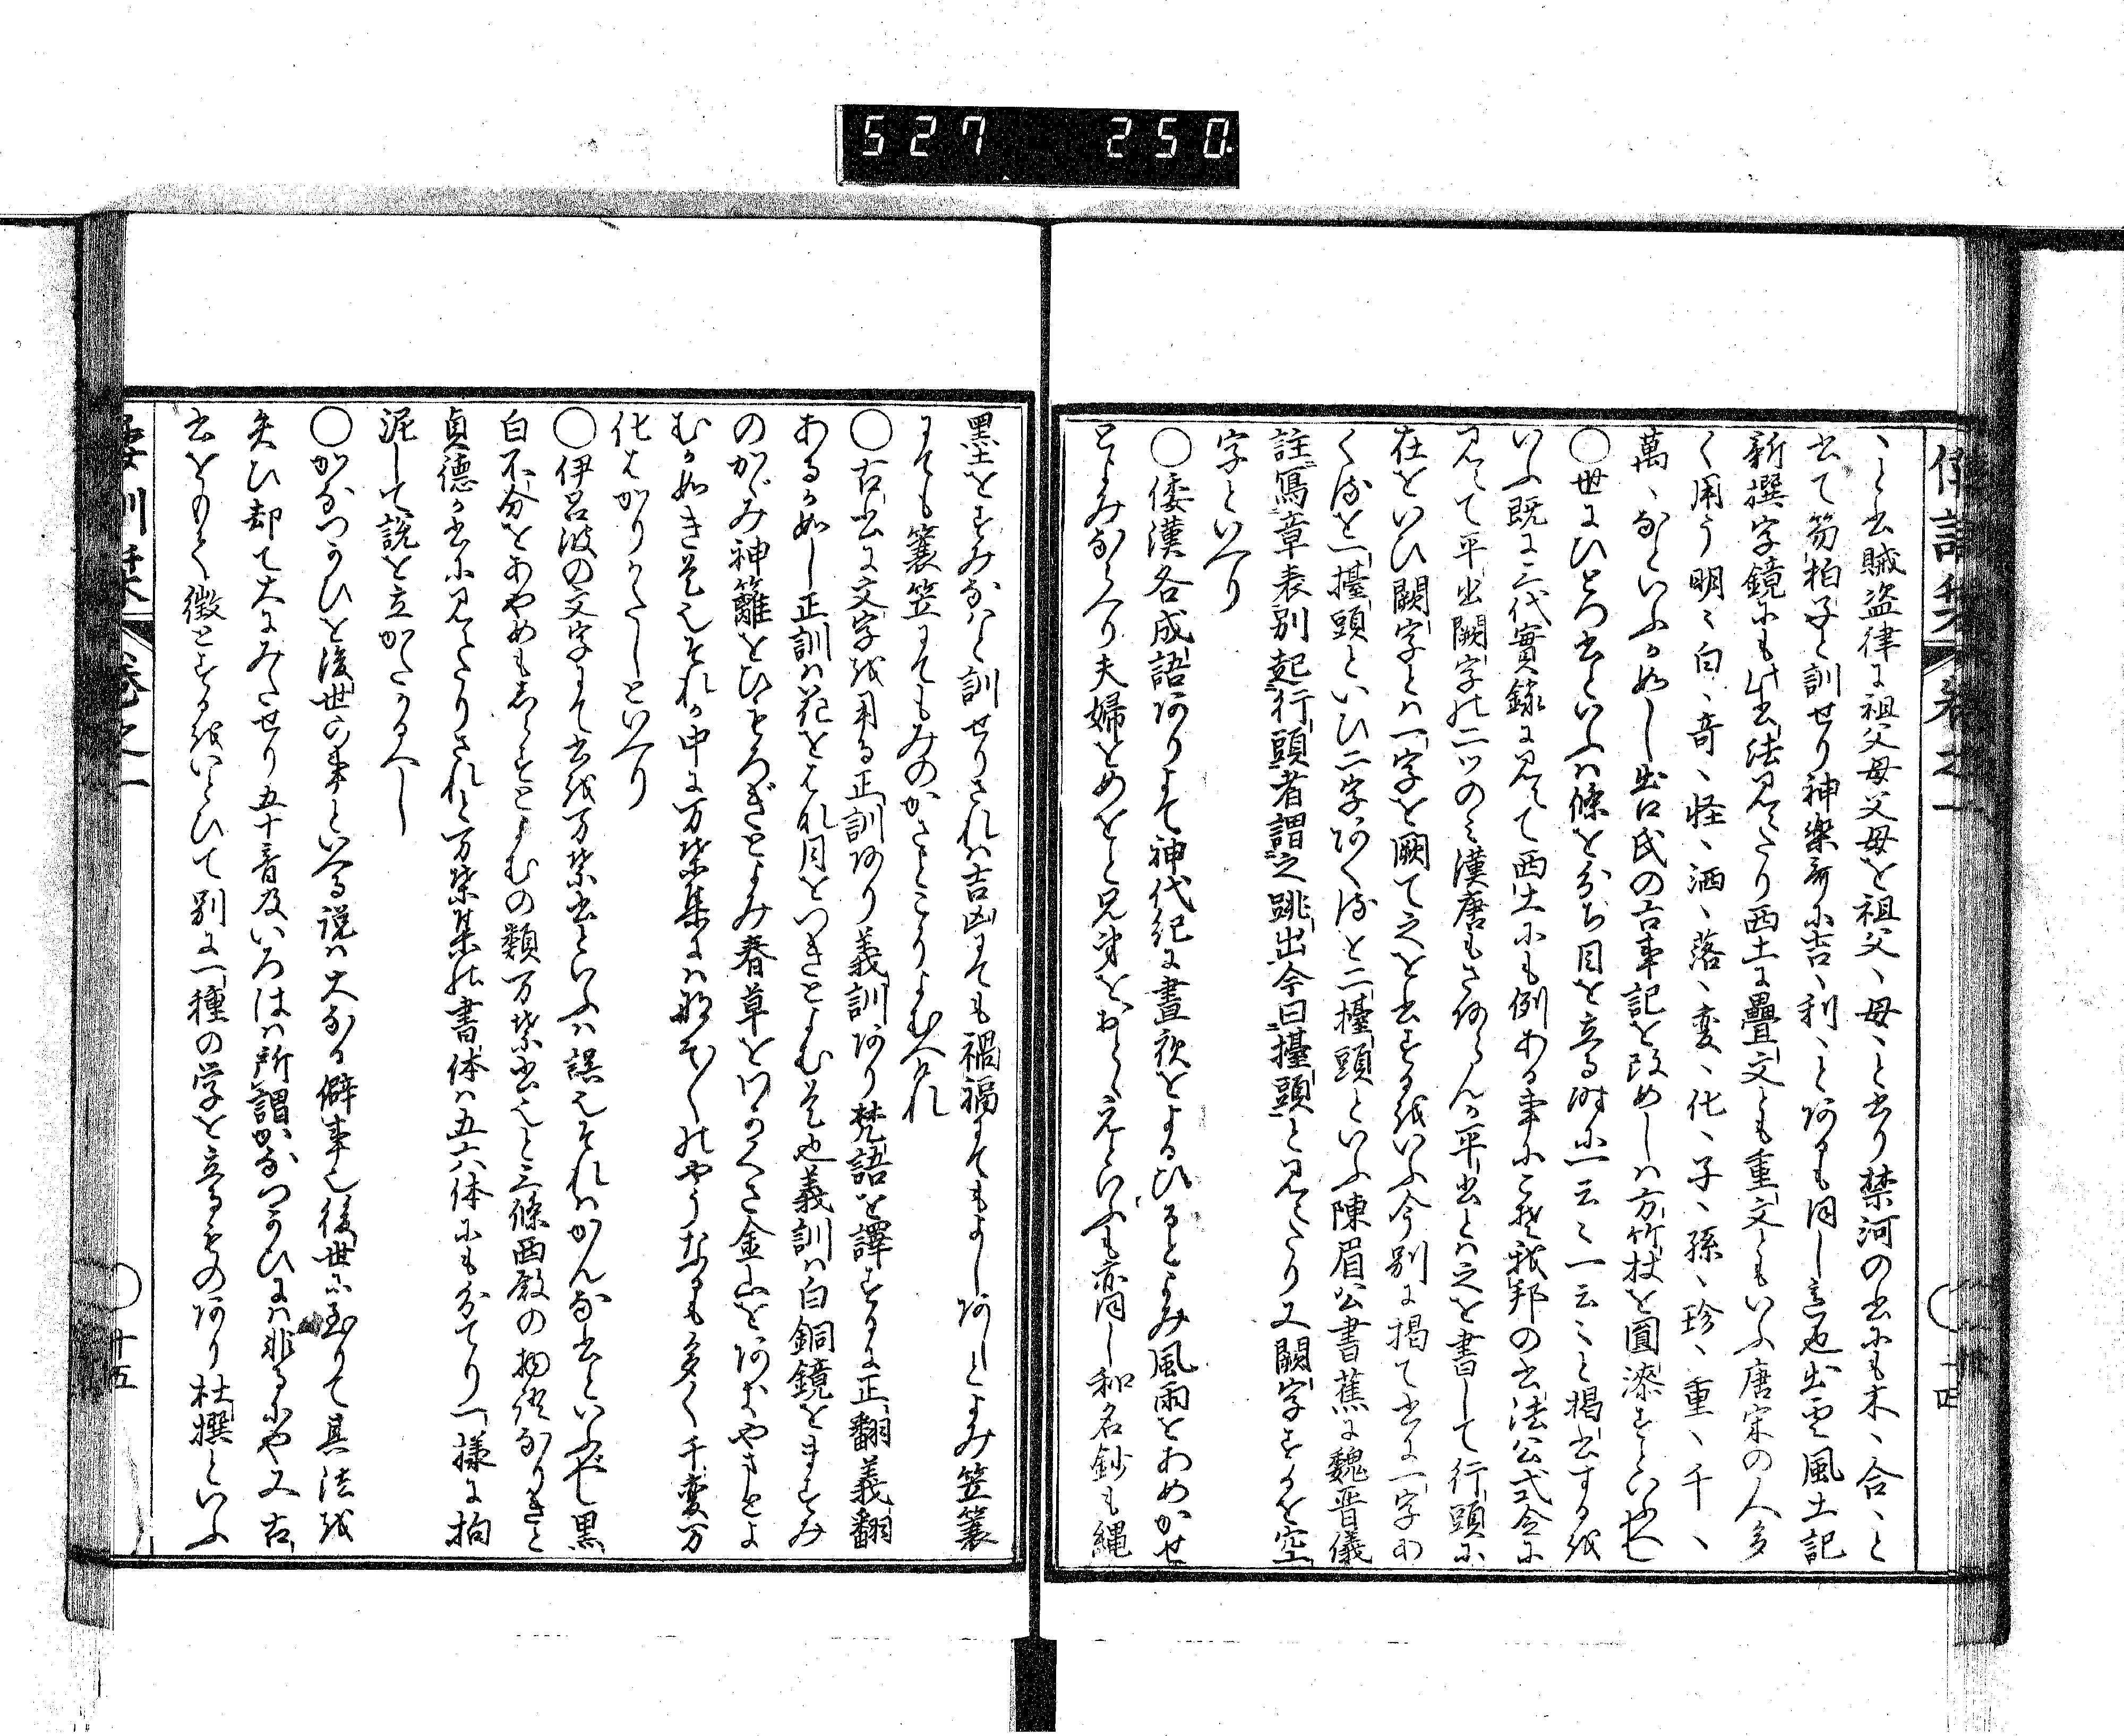 527 250
倭訓栞 巻之一
ヽと出賊盗律に祖父母父母を祖父ヽ母ヽと出り禁河の書にも木ヽ合ヽと
書て笏拍子と訓せり神楽哥に吉ヽ利ヽとあるも同し意也出雲風土記
新撰字鏡にも此書法見えたり西土に疊文とも重文ともいふ唐宋の人多
く用う明ミ白ヽ奇ヽ怪ヽ洒ヽ落ヽ変ヽ化ヽ子ヽ孫ヽ珍ヽ重ヽ千ヽ
萬ヽなといふか如し出口氏の古事記を改めしは方竹杖を圓漆すといふへし
〇世にひとつ書といふは條を分ち目を立る時に一云ミ一云ミと掲出するを
いふ既に三代實録に見えて西土にも例ある事にこそ我邦の書法公式令に
見えて平出闕字の二ツのミ漢唐もさあらんか平出とは之を書して行頭に
在をいひ闕字とは一字を闕て之を書するをいふ今別に掲て書に一字あ
くるを一擡頭といひ二字あくるを二擡頭といふ陳眉公書蕉に魏晋儀
註寫章表別起行頭者謂之跳出今曰擡頭と見えたり又闕字するを空
字といへり
〇倭漢各成語ありよて神代紀に晝夜をよるひるとよみ風雨をあめかせ
とよみならへり夫婦をめをと兄弟をおとゝえといふも亦同し和名鈔も縄
十四
墨をすみなはと訓せりされは吉凶にても禍福にてもよしあしとよみ笠簑
にても簑笠にてもみのかさとこそよむへけれ
〇古書に文字を用る正訓あり義訓あり梵語を譯するに正翻義翻
あるか如し正訓は花をはな月をつきとよむ是也義訓は白銅鏡をますみ
のかゞみ神籬をひもろぎとよみ春草をわかくさ金山をあおやまとよ
むか如き是也それか中に万葉集には殊に〱のやうなるも多く千変万
化はかりかたしといへり
〇伊呂波の文字にて書を万葉書といふは誤也それはかんな書といふべし黒
白不分をあやめもしらすとよむの類万葉書也と三條西殿の物語なりきと
貞徳か書に見えたりされと万葉集の書体は五六体にも分てり一様に拘
泥して説を立かたかるへし
〇かなつかひを後世の事といへる説は大なる僻事也後世に至りて其法を
失ひ却て大にみたせり五十音及いろはは所謂かなつかひには非るにや又古
書をもて徴とするをいとひて別に一種の学を立るものあり杜撰といふ
倭訓栞 巻之一
十五